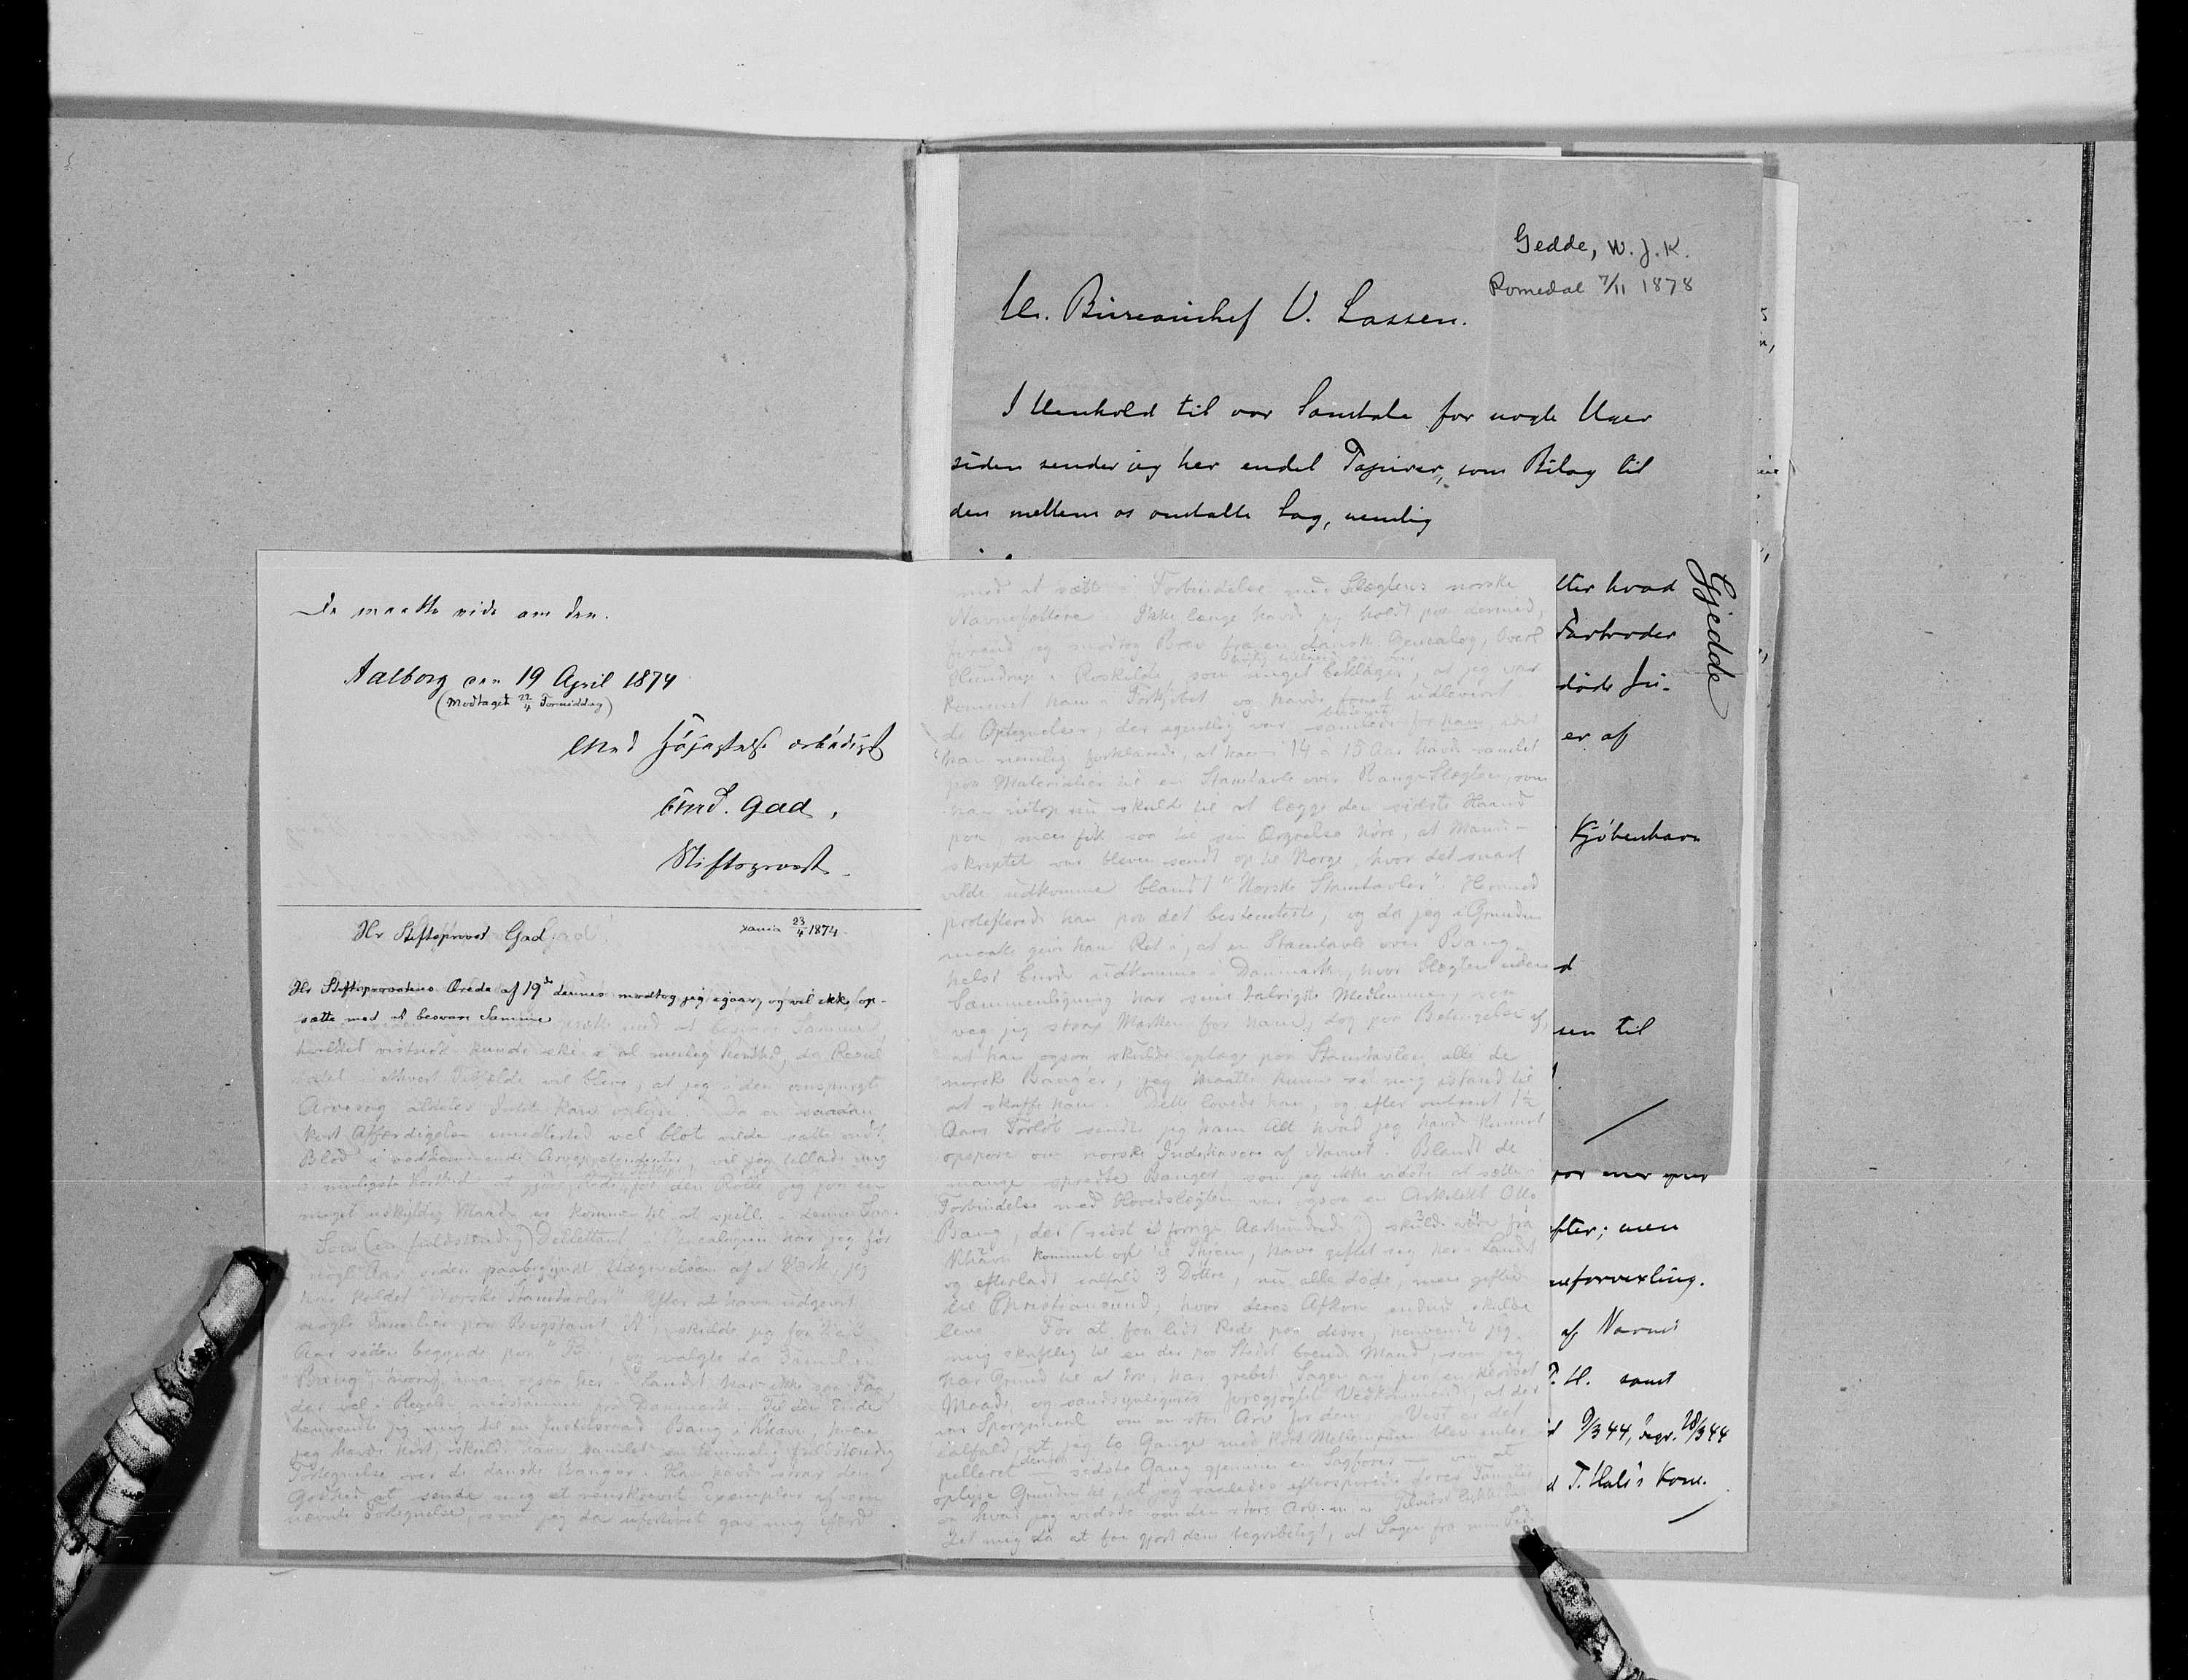 De maatte vide om den.
Aalborg den 19 April 1874
(Modtaget 22/4 Formiddag)
Med Højagtelse ærbødigst
Emd. Gad,
Stiftsprovst.
Hr Stiftsprovst Gad. xania 23/4 1874.
Hr Stiftsprovstens Ærede af 19de dennes modtog jeg igaar, og vil ikke op-
sætte med at besvare Samme
hvilket vistnok kunde ske i al mulig Korthed, da Resul-
tatet i ethvert Tilfælde vil blive, at jeg i den omspurgte
Arvesag aldeles Intet kan oplyse. Da en saadan
kort Affærdigelse imidlertid vel blot vilde sætte ondt
Blod i vedkommende Arveprætendenter, vil jeg tillade mig
i muligste Korthed at gjøre Rede for den Rolle jeg paa en
meget uskyldig Maade er kommen til at spille i denne Sag.
Som (en fuldstændig) Dilettant i Genealogien har jeg for
nogle Aar siden paabegyndt Udgivelsen af et Værk, jeg
har kaldet "Norske Stamtavler". Efter at have udgivet
nogle Familier paa Bogstavet A, skulde jeg for
Aar siden begynde paa "B", og valgte da Familien
"Bang", hvoraf man ogsaa her i Landet har ikke saa Faa
der vel i Regelen nedstamme fra Danmark. Til den Ende
henvendte jeg mig til en Justitsraad Bang i Khavn, hvem
jeg havde hørt, skulde have samlet en temmelig fuldstændig
Fortegnelse over de danske Banger. Han havde strax den
Godhed at sende mig et renskrevet Exemplar af sin
nævnte Fortegnelse, som jeg da ufortøvet gav mig ifærd
med at sætte i Forbindelse med Slægtens norske
Navnefættere. Ikke længe havde jeg holdt paa dermed,
førend jeg modtog Brev fra en dansk Genealog, Overl
Hundrup i Roskilde, som meget beklager, at jeg var
kommet ham i Forkjøbet og havde udleveret
de Optegnelser, der egentlig var samlede for ham, idet
han nemlig forklarede, at han i 14 a 15 Aar havde samlet
paa Materialier til en Stamtavle over Bange Slægten, som
han netop nu skulde til at lægge den sidste Haand
paa, men fik saa til sin Ærgrelse høre, at Manu-
skriptet var bleven sendt op til Norge, hvor det snart
vilde udkomme blandt "Norske Stamtavler". Hermed
protesterede han paa det bestemteste, og da jeg i Grunden
maatte give ham Ret i, at en Stamtavle over Bang
helst burde udkomme i Danmark, hvor Slægten uden
Sammenligning har sine talrigste Medlemmer, saa
veg jeg strax Marken for ham, dog paa Betingelse af,
at han ogsaa skulde optage paa Stamtavlen alle de
norske Bang'er, jeg maatte kunne se mig istand til
at skaffe ham. Dette lovede han, og efter omtrent 1½
Aars Forløb sendte jeg ham Alt hvad jeg havde kunnet
opspore om norske Indehavere af Navnet. Blandt de
mange spredte Banger, som jeg ikke vidste at sætte i
Forbindelse med Hovedslægten var ogsaa en Arkitekt Otto
Bang, der (sidst i forrige Aarhundrede?) skulde være fra
Khavn kommet op til Thjem, have giftet sig her i Landet
og efterladt ialfald 3 Døttre, nu alle døde, men giftede
til Christiansund, hvor deres Afkom endnu skulde
leve. For at faa lidt Rede paa disse, henvendte jeg
mig skriftlig til en der paa Stedet boende Mand, som jeg
har Grund til at tro, har grebet Sagen an paa en keitet
Maade, og sandsynligvis foregjøglet Vedkommende, at der
var Spørgsmaal om en stor Arv for dem. Vist er det
ialfald at jeg to Gange med kort Mellemrum blev inter-
pelleret sidste Gang gjennem en Sagfører om at
oplyse Grunden til, at jeg saaledes efterspurgte deres Familie
om hvad jeg vidste om den store Arv
Jet mig da at faa gjort dem begribeligt, at Sagen fra min Side
Gedde, W. J. K.
Romedal 7/11 1878
Hr. Bureauchef V. Lassen.
I Henhold til vor Samtale for nogle Uger
siden sender jeg her endel Papirer, som Bilag til
den mellem os omtalte Sag, nemlig
Gjedde
tter hvad
Farbroder
døde fri-
er af
Kjöbenhavn
d
sen til
fter; men
meforvexling.
af Navnet
P. H. samt
9/3 44, begr. 18/3 44
d T. Hals's Kone.